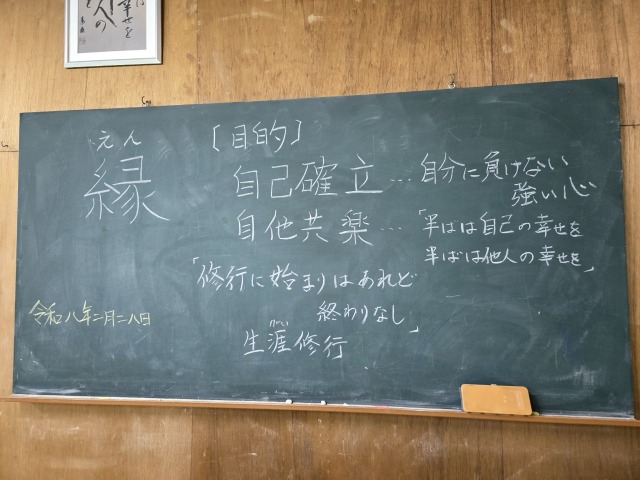 幸せを
人の
えん
縁
[目的]
自己確立…自分に負けない
強い心
自他共楽…「半ばは自己の幸せを
半ばは他人の幸せを」
「修行に始まりはあれど
終わりなし」
生涯修行
令和八年二月二八日